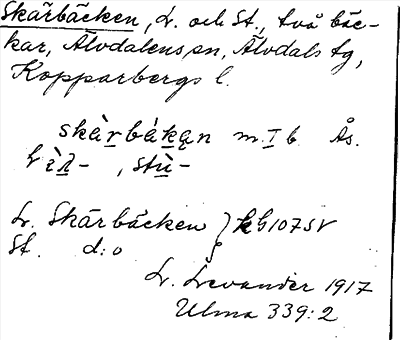 Skärbäcken, L. och St., två bäc-
kar, Älvdalens sn, Älvdals tg,
Kopparbergs l.
skàrbàkan m. I b. Ås.
L. Skärbäcken } kG107SV
St. d:o
L. Levander 1917
Ulma 339:2